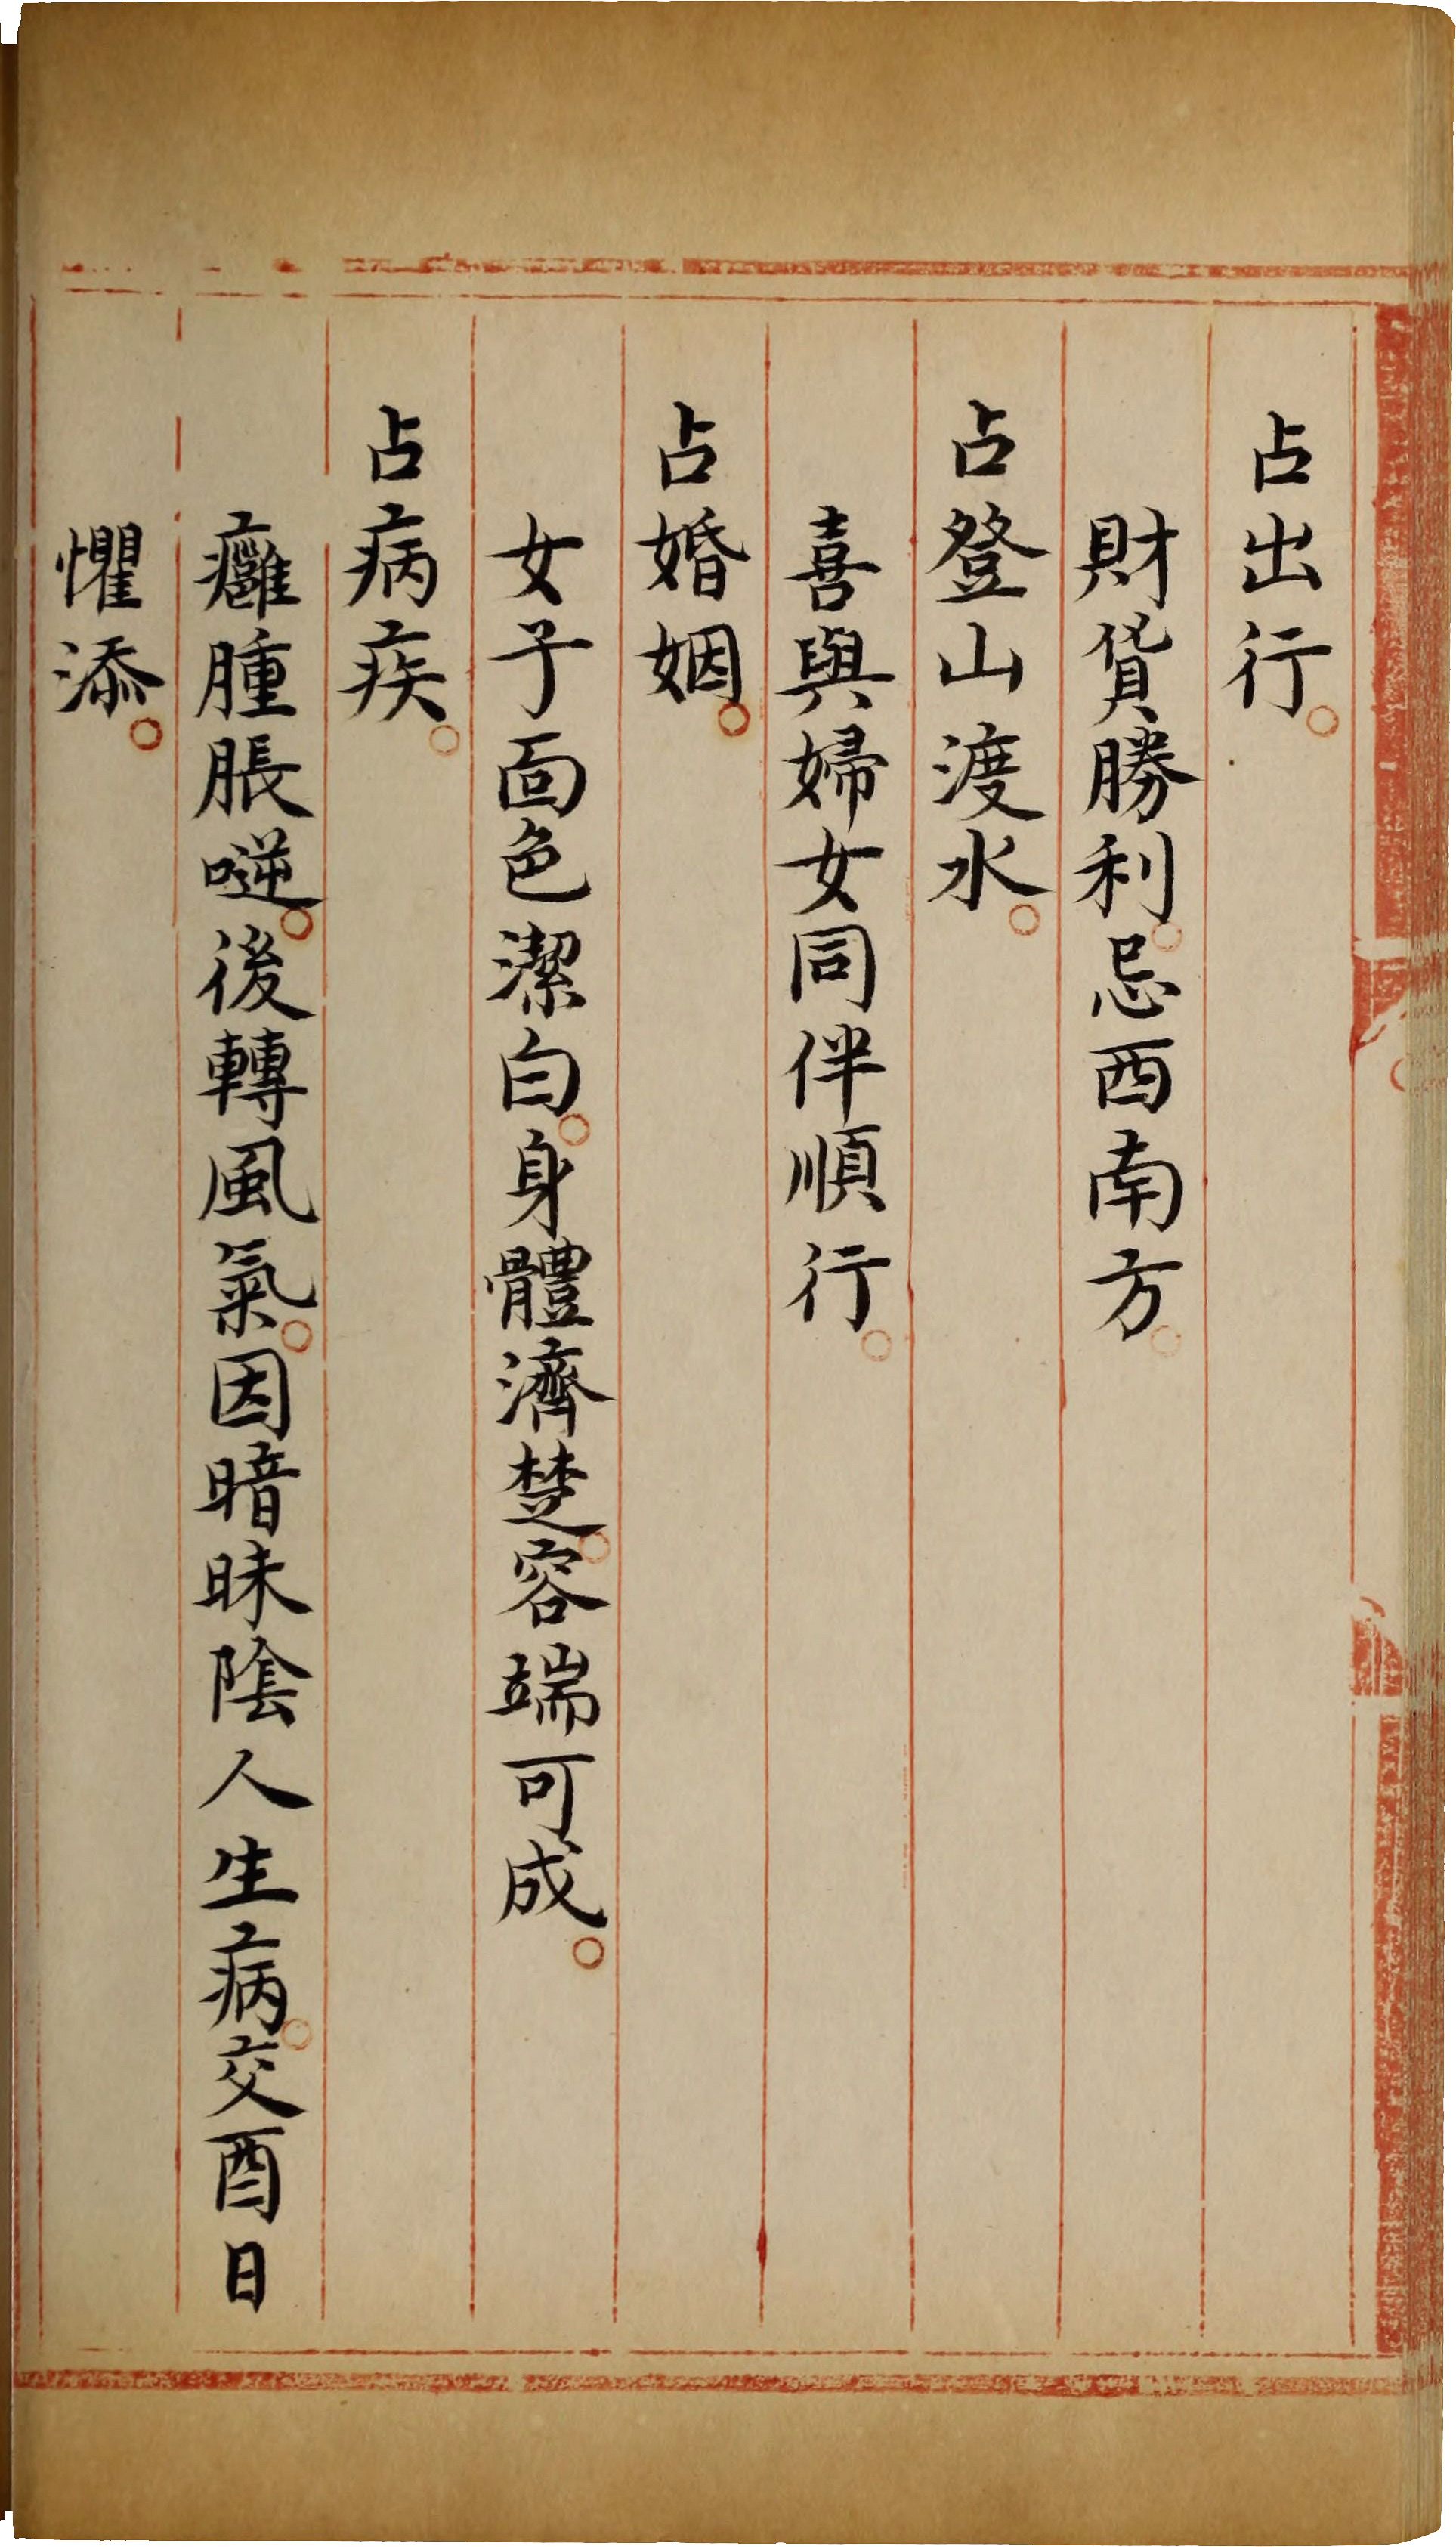 占出行。
財貨勝利。忌西南方。
占登山渡水。
喜與婦女同伴順行。
占婚姻。
女子面色潔白。身體濟楚。容端可成。
占病疾。
癰腫脹噎。後轉風氣。因暗昧陰人生病。交酉日
懼添。